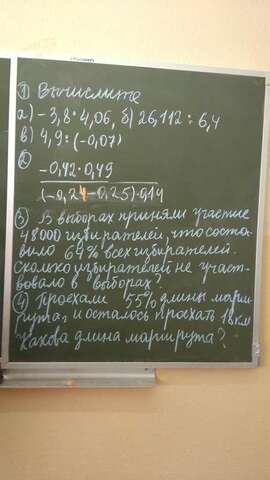 ① Вычислите
а) -3,8 · 4,06, б) 26,112 : 6,4
в) 4,9 : (-0,07)
②
-0,42 · 0,49
(-0,24-0,25) · 0,14
③ В выборах приняли участие
48000 избирателей, что соста-
вило 64% всех избирателей.
Сколько избирателей не участ-
вовало в выборах?
④ Проехали 55% длины марш-
рута, и осталось проехать 18 км
Какова длина маршрута?